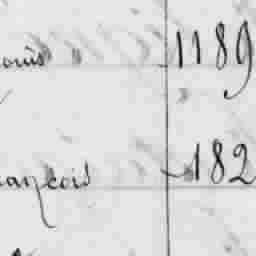 ouis 1189
ançois 182